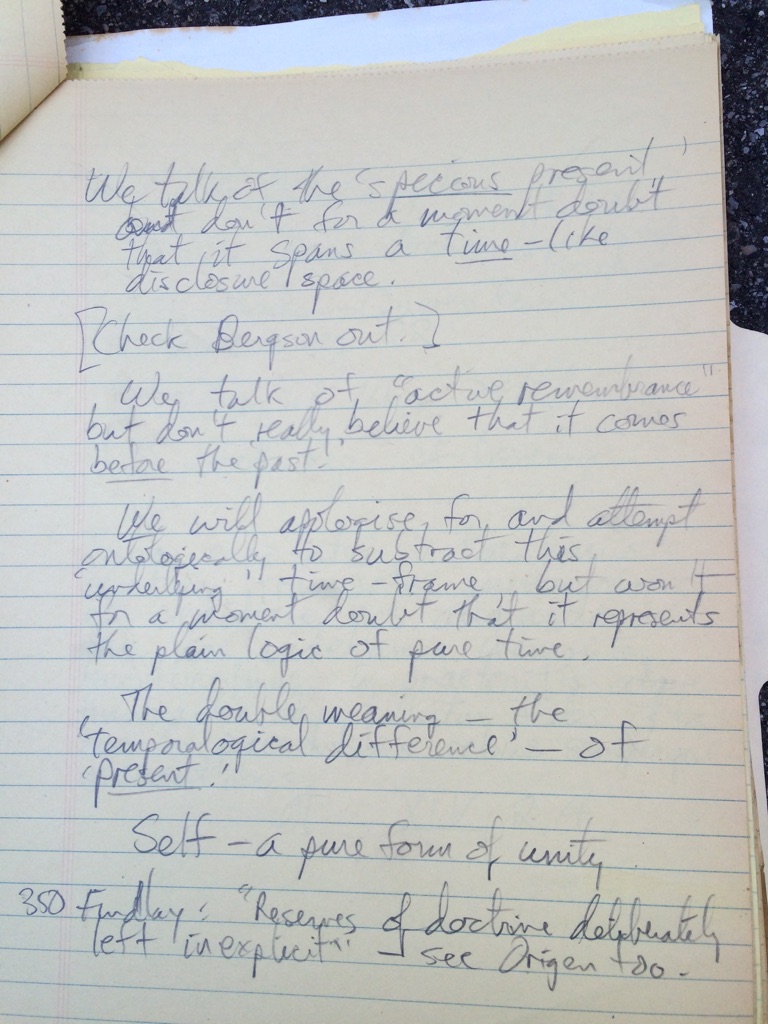 We talk of the 'specious present'
and don't for a moment doubt
that it spans a time-like
disclosure space.
[Check Bergson out.]
We talk of "active remembrance"
but don't 'really' believe that it comes
before the 'past.'
We will apologise for, and attempt
ontologically to subtract this
"underlying" time-frame, but won't
for a moment doubt that it represents
the plain logic of pure time.
The double meaning — the
'temporalogical difference' — of
'present.'
Self – a pure form of unity
350 Findlay: "Reserves of doctrine deliberately
left inexplicit" – see Origen too.